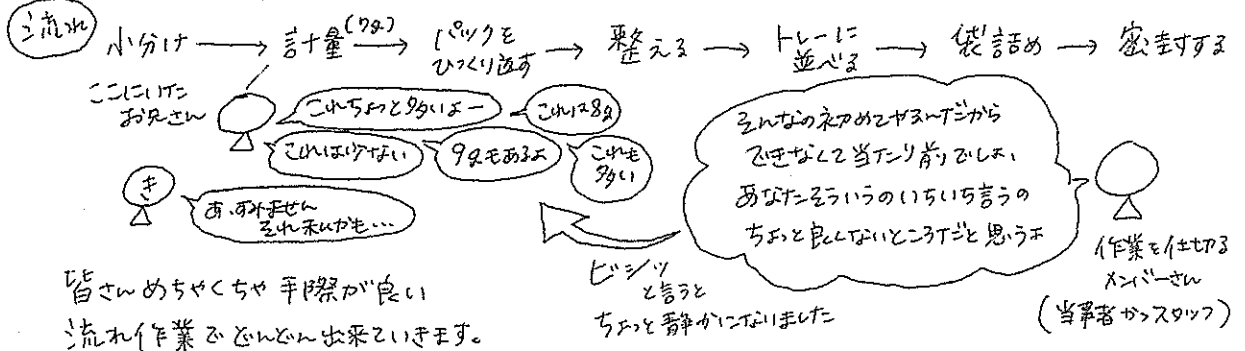 流れ
小分け → 計量(7g) → パックをひっくり返す → 整える → トレーに並べる → 袋詰め → 密封する
ここにいた
お兄さん
これちょっと多いよー
これは8g
これは少ない
9gもあるよ
これも
多い
き
あ、すみません
それ私かも…
そんなの初めてやるんだから
できなくて当たり前でしょ、
あなたそういうのいちいち言うの
ちょっと良くないところだと思うよ
作業を仕切る
メンバーさん
(当事者かつスタッフ)
ビシッ
と言うと
ちょっと静かになりました
皆さんめちゃくちゃ手際が良い
流れ作業でどんどん出来ていきます。